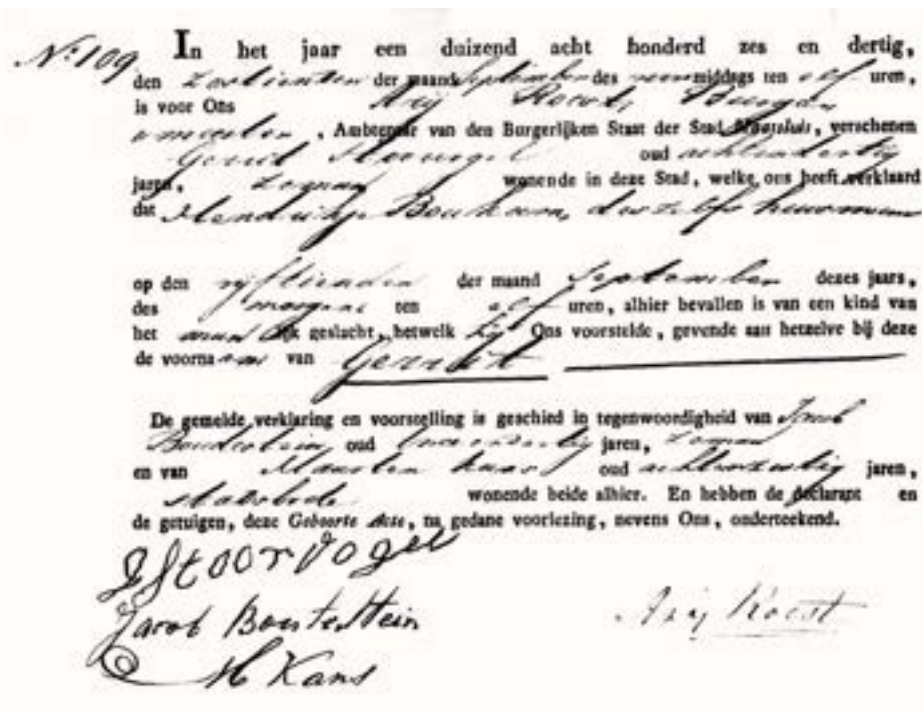 N:o 109. In het jaar een duizend acht honderd zes en dertig,
den zestienden der maand September des voormiddags ten elf uren,
is voor Ons Arij Roest, Burge
meester, Ambtenaar van den Burgerlijken Staat der Stad Maassluis, verschenen
Gerrit oud achtendertig
jaren, Zeeman wonende in deze Stad, welke ons heeft verklaard
dat Hendrikje deszelfs huisvrouw
op den vijftienden der maand September dezes jaars,
des morgens ten elf uren, alhier bevallen is van een kind van
het mannelijk geslacht, hetwelk hij Ons voorstelde, gevende aan hetzelve bij deze
de voornaam van Gerrit
De gemelde verklaring en voorstelling is geschied in tegenwoordigheid van Jacob
oud jaren, Zeeman
en van Maarten oud jaren,
stadsbode wonende beide alhier. En hebben de declarant en
de getuigen, deze Geboorte Acte, na gedane voorlezing, nevens Ons, onderteekend.
G Stoorvogel
Jacob Boestertein Arij Roest
M Kans